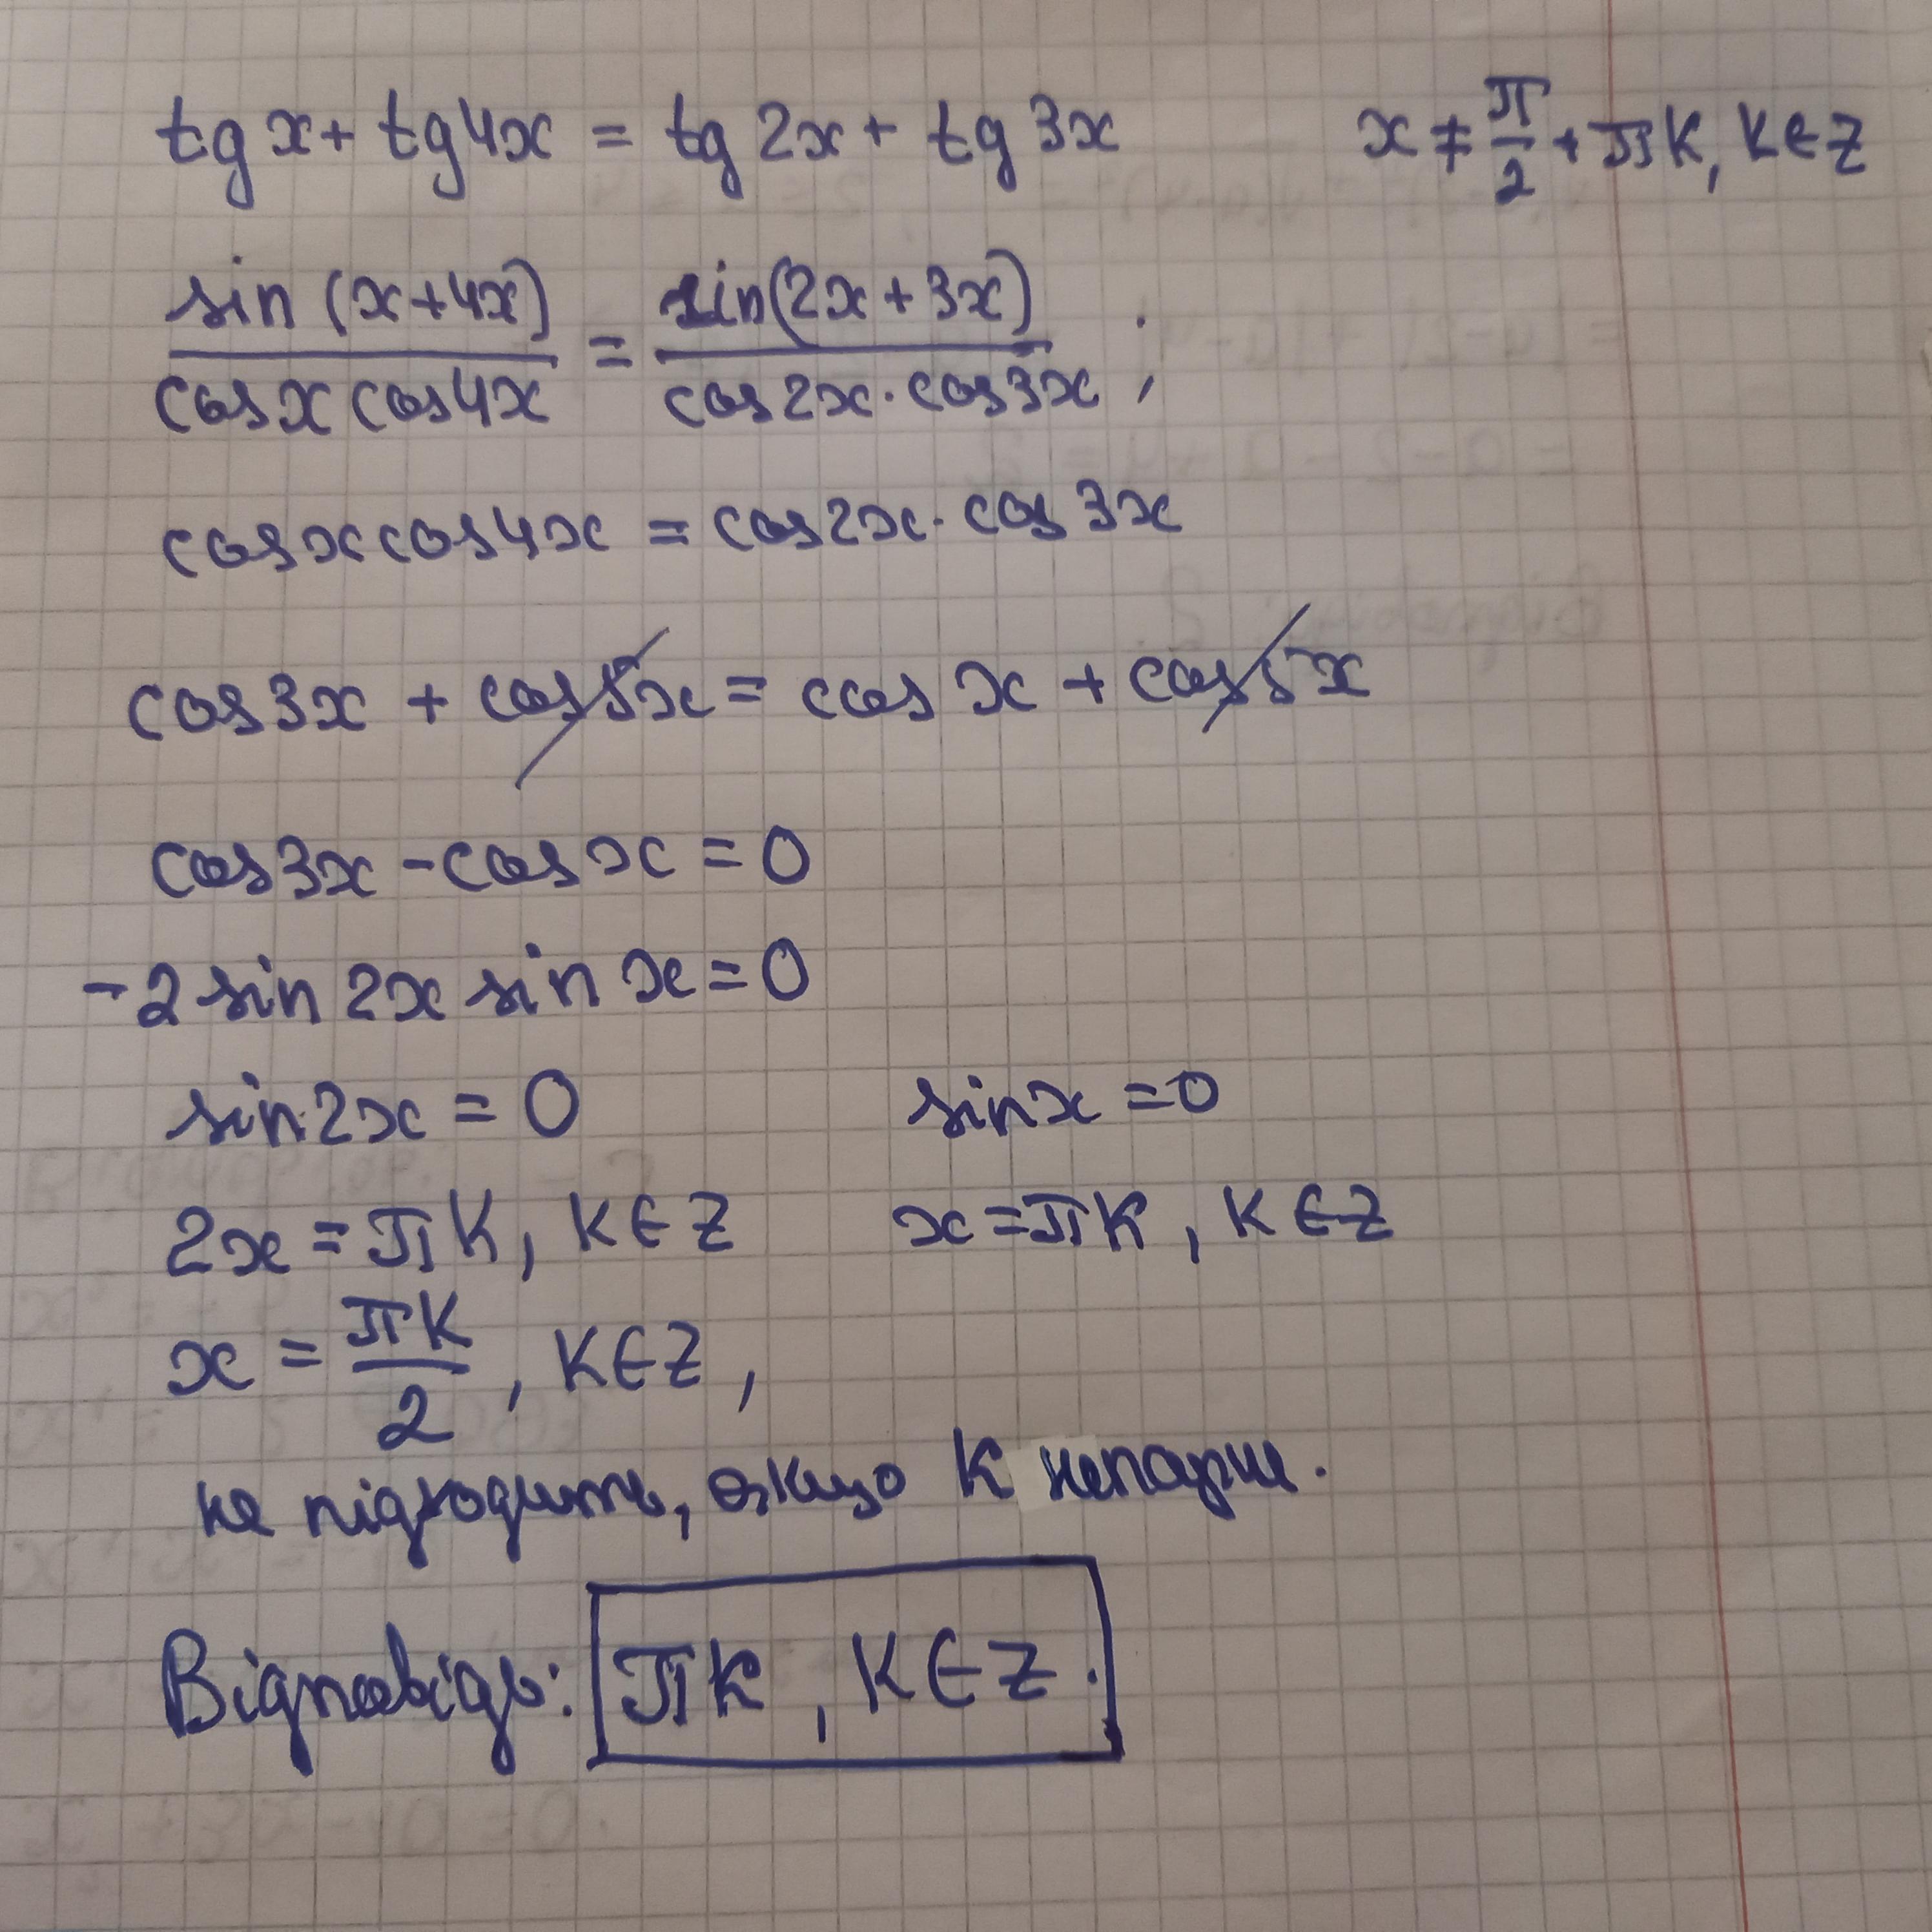 tg x + tg 4x = tg 2x + tg 3x    x ≠ π/2 + πK, K ∈ Z
sin (x+4x) / cos x cos 4x = sin(2x + 3x) / cos 2x · cos 3x ;
cos x cos 4x = cos 2x · cos 3x
cos 3x + cos 5x = cos x + cos 5x
cos 3x - cos x = 0
-2 sin 2x sin x = 0
sin 2x = 0    sin x = 0
2x = πK, K ∈ Z    x = πK, K ∈ Z
x = πK/2, K ∈ Z,
не підходить, якщо K непарне.
Відповідь: πK, K ∈ Z.